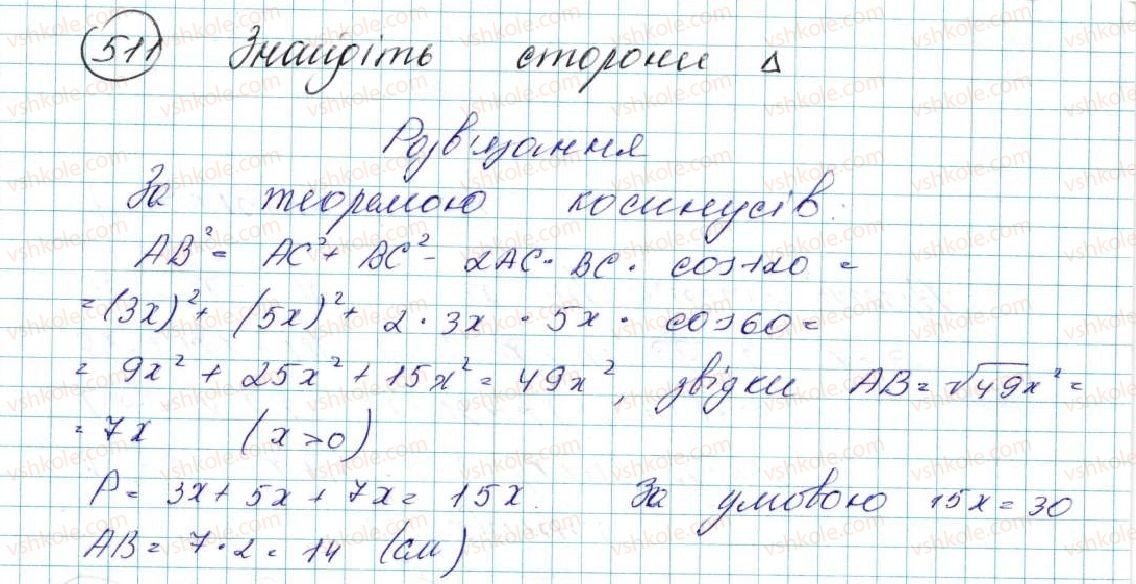 511 Знайдіть сторони Δ
Розв'язання
За теоремою косинусів:
AB² = AC² + BC² - 2AC · BC · cos120 =
= (3x)² + (5x)² + 2 · 3x · 5x · cos60 =
= 9x² + 25x² + 15x² = 49x², звідки AB = √49x² =
= 7x (x>0)
P = 3x + 5x + 7x = 15x. За умовою 15x = 30
AB = 7 · 2 = 14 (см)